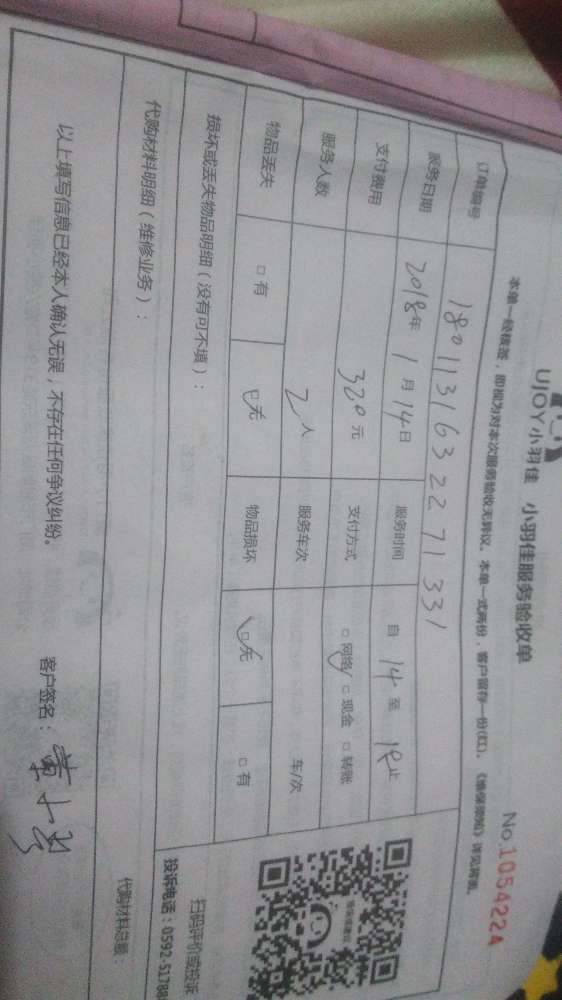 UJOY小羽佳 小羽佳服务验收单
No.1054224
本单一经核签，即视为对本次服务验收无异议。本单一式两份，客户留存一份(红)。《维保须知》详见背面。
订单编号 180113163227 1331
服务日期 2018年 1月 14日 服务时间 自 14 至 18 止
支付费用 320元 支付方式 □网络 □现金 □转账
服务人数 2人 服务车次 车/次
物品丢失 □有 □无 物品损坏 □无 □有
损坏或丢失物品明细（没有可不填）：
扫码评价或投诉
投诉电话：0592-51788
代购材料明细（维修业务）：
代购材料总额：
以上填写信息已经本人确认无误，不存在任何争议纠纷。 客户签名：